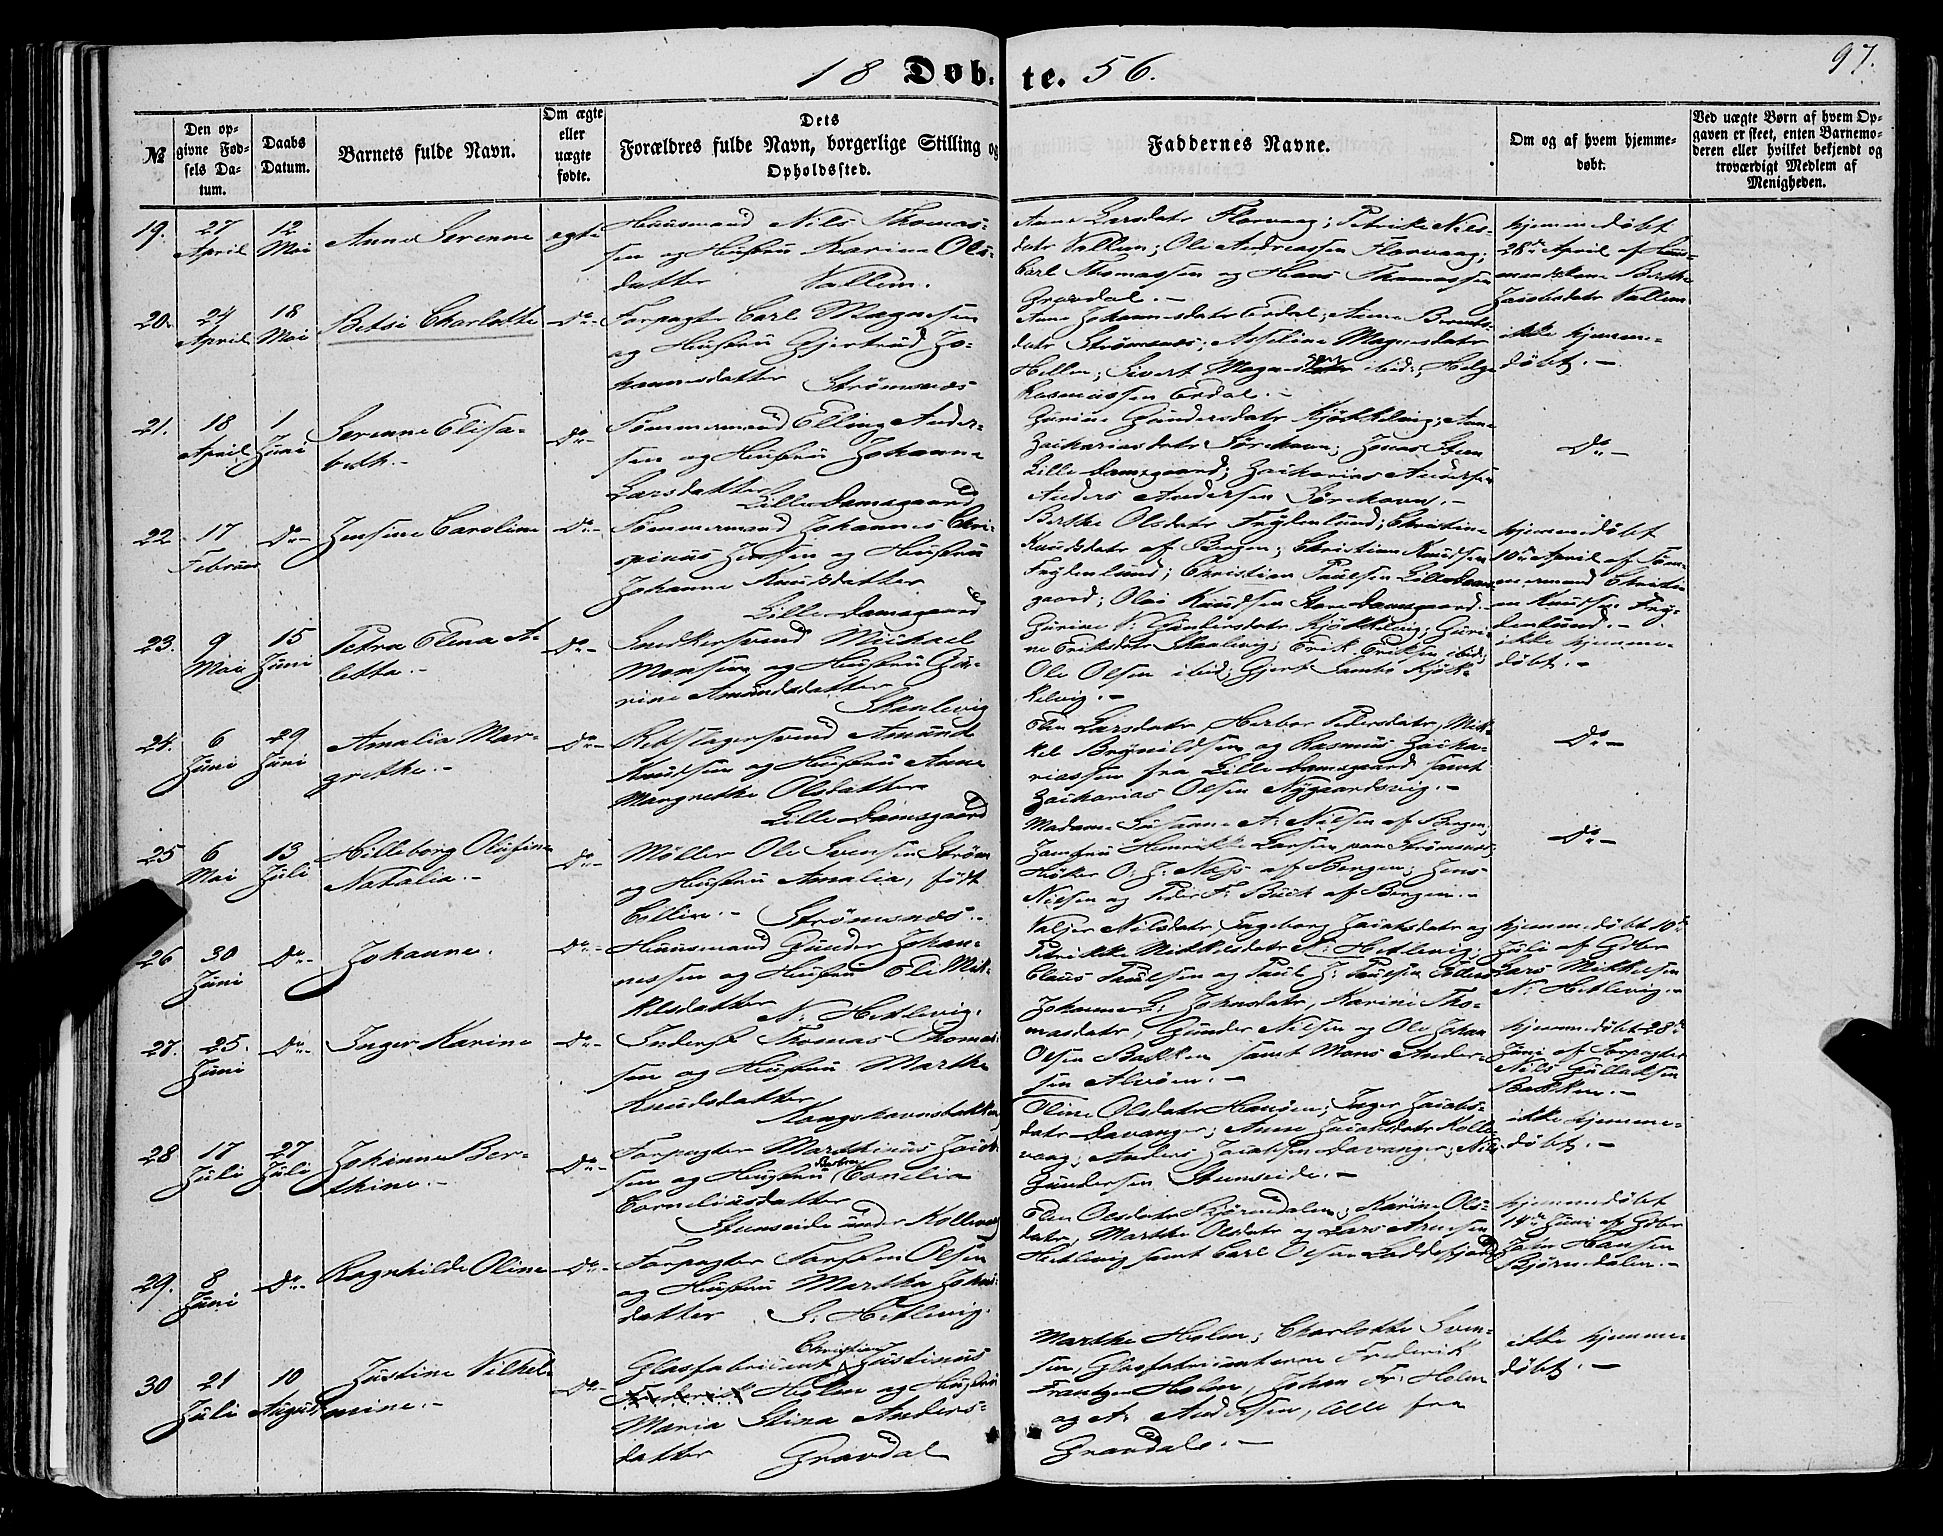 97.
18 Døb-
te. 56.
№
Den op-
givne Fød-
sels Da-
tum.
Daabs
Datum.
Barnets fulde Navn.
Om ægte
eller
uægte
fødte.
Dets
Forældres fulde Navn, borgerlige Stilling og
Opholdssted.
Faddernes Navne.
Om og af hvem hjemme-
døbt.
Ved uægte Børn af hvem Op-
gaven er skeet, enten Barnemo-
deren eller hvilket bekjendt og
troværdigt Medlem af
Menigheden.
19.
27
April
12
Mai
Anne Serenne
egte
Huusmand Nils Thomas-
sen og Hustru Karine Ols-
datter Vallem.
Anne Larsdatr Florvaag; Petrike Nils-
datr Vallem; Ole Andreassen Florvaag;
Carl Thomassen og Hans Thomassen
Gravdal.-
hjemmedøbt
28de April af Huus-
mandskone Berthe
Jacobsdatr Vallem
20.
24
April
18
Mai
Betsi Charlotte
Do-
Forpagter Carl Magnesen
og Hustru Gjertrud Jo-
hannesdatter Strømsnæs
Anne Johannesdatr Erdal; Anne Berents-
datr Strømsnæs; Asseline Magnesdatr
Hellen; Sivert Magnesen ibid; Helge
Rasmussen Erdal.-
ikke hjemme-
døbt.-
21.
18
April
1
Juni
Serenne Elisa-
beth.-
Do-
Tømmermand Elling Ander-
sen og Hustru Johanne
Larsdatter
Lille Damsgaard
Gurine Gundersdatr Kjøkkelvig; Anne
Zachariasdatr Sørehavn; Jonas Steen
Lille Damsgaard; Zacharias Andersen
Anders Andersen Sørehavn.-
Do-
22
17
Februar
Do-
Jensine Caroline
Do-
Tømmermand Johannes Chri-
spinus Jensen og Hustru
Johanne Knudsdatter
Lille Damsgaard
Berthe Olsdatr Frydenlund; Christine
Knudsdatr af Bergen; Christian Knudsen
Frydenlund; Christian Paulsen Lille Dams-
gaard; Olai Knudsen Store Damsgaard.
hjemmedøbt
10de April af Tøm-
mermand Christi-
an Knudsen Fry-
denlund.-
23.
9
Mai
15
Juni
Petra Elena A-
letta.-
Do-
Snedkersvend Mikkel
Monsen og Hustru Gu-
rine Amundsdatter
Skaalevig
Gurine Gundersdatr Kjøkkelvig; Guri-
ne Eriksdatr Skaalevig; Erik Eriksen ibid;
Ole Olsen ibid; Gjert Samtø Kjøk-
kelvig.-
ikke hjemme-
døbt.-
24.
6
Juni
29
Juni
Amalia Mar-
grethe.-
Do-
Rebslagersvend Amund
Knudsen og Hustru Anne
Margrethe Olsdatter
Lille Damsgaard
Elen Larsdatr, Herbor Pedersdatr, Mik-
kel Brynildsen og Rasmus Zacha-
riassen fra Lille Damsgaard samt
Zacharias Olsen Nygaardsvig.-
Do-
25
6
Mai
13
Juli
Hilleborg Olufine
Natalia.-
Do-
Møller Ole Svensen Strøm
og Hustru Amalia, født
Cellin.- Strømsnæs.-
Madame Susanne A. Nielsen af Bergen,
Jomfru Henrikke Larsen paa Strømsnæs,
Høker O. J. Næss af Bergen; Jens
Nielsen og Peder F. Buch af Bergen.-
Do-
26
30
Juni
Do-
Johanne.
Do-
Huusmand Gunder Johan-
nessen og Hustru Eli Mik-
kelsdatter
N. Hetlevig.
Valjer Nilsdatr, Ingeborg Jacobsdatr og
Petrikke Mikkelsdatr N. Hetlevig;
Claus Paulsen og Paul J. Paulsen
hjemmedøbt 10de
Juli af Gdbr
Lars Mikkelsen
N. Hetlevig.-
27.
25.
Juni
Do-
Inger Karine
Do-
Inderst Thomas Thomas-
sen og Hustru Marthe
Knudsdatter
Kongshavnsbakken
Johanne L. Johnsdatr, Karine Tho-
masdatr, Gunder Nilsen og Ole Johan
Olsen Bakken samt Mons Ander-
sen Alvøen.-
hjemmedøbt 28de
Juni af Forpagter
Nils Gullaksen
Bakken.-
28
17
Juli
27
Juli
Johanne Ber-
thine.-
Do-
Forpagter Marthinus Jacob-
sen og Hustru Cornelia
Corneliusdatter
Steenseide under Kollevaag
Oline Olsdatr Hansen; Inger Jacobs-
datr Davanger; Anne Jacobsdatr Kolle-
vaag; Anders Jacobsen Davanger; Nils
Gundersen Steenseide.-
ikke hjemme-
døbt.-
29.
8
Juni
Do-
Ragnhilde Oline
Do-
Forpagter Torsten Olsen
og Hustru Martha Johns-
datter S. Hetlevig.
Elen Olsdatr Bjørndalen, Karine Ols-
datr, Marthe Olsdatr og Lars Arnesen
Hetlevig samt Carl Olsen Laddefjord
hjemmedøbt
14de Juni af Gdbr
John Hansen
Bjørndalen.-
30
21
Juli
10
August
Justine Vilhel-
mine.-
Do-
Glasfabricant Christian Justinus
Frederik Holm og Hustru
Maria Stina Anders-
datter Gravdal
Marthe Holm; Charlotte Sven-
sen, Glasfabricanterne Frederik
Frantzen Holm, Johan Fr. Holm
og A. Andersen, alle fra
Gravdal.-
ikke hjemme-
døbt.-